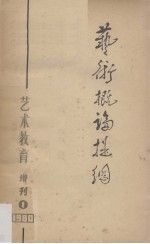 藝術概論提綱
艺术教育
增刊
1